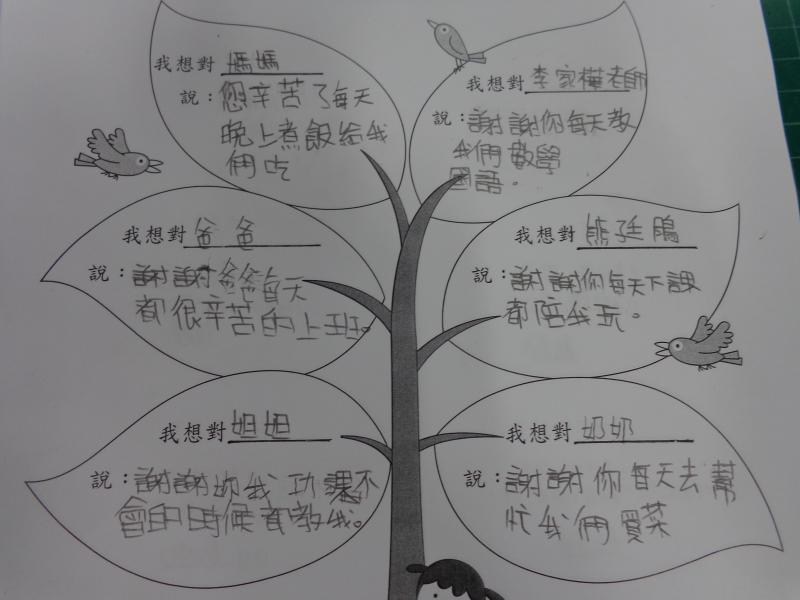 我想對媽媽
說：您辛苦了每天
晚上煮飯給我
們吃
我想對李家樺老師
說：謝謝你每天教
我們數學
國語。
我想對爸爸
說：謝謝爸爸每天
都很辛苦的上班。
我想對熊廷鵑
說：謝謝你每天下課
都陪我玩。
我想對姐姐
說：謝謝妳我功課不
會的時候都教我。
我想對奶奶
說：謝謝你每天去幫
忙我們買菜